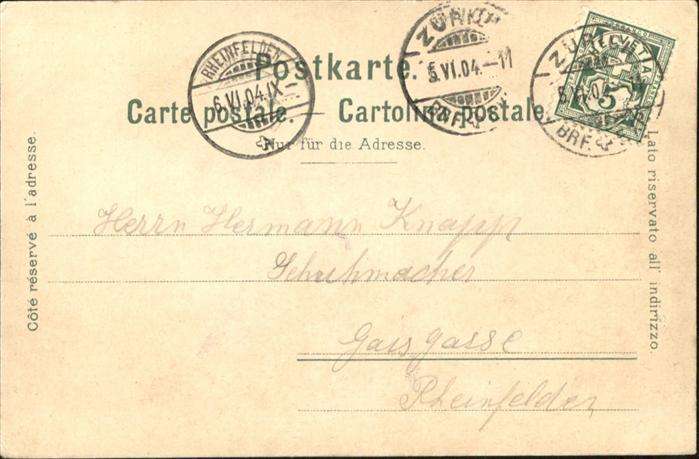 Postkarte.
Carte postale. — Cartolina postale.
Nur für die Adresse.
Côté réservé à l'adresse.
Lato riservato all' indirizzo.
RHEINFELDEN
6.VI.04.IX
ZÜRICH
5.VI.04.–11
BRF.
ZÜ
5.VI.04
BRF.
HELVETIA
5
Herrn Hermann Knapp
Schuhmacher
Gaisgasse
Rheinfelden